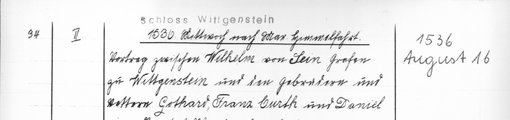 Schloss Wittgenstein
94 II 1536 Mittwoch nach Mar Himmelfahrt. 1536
August 16
Vertrag zwischen Wilhelm von Sein Grafen
zu Wittgenstein und den gebrudern und
vettern Gothard, Franz Curth und Daniel